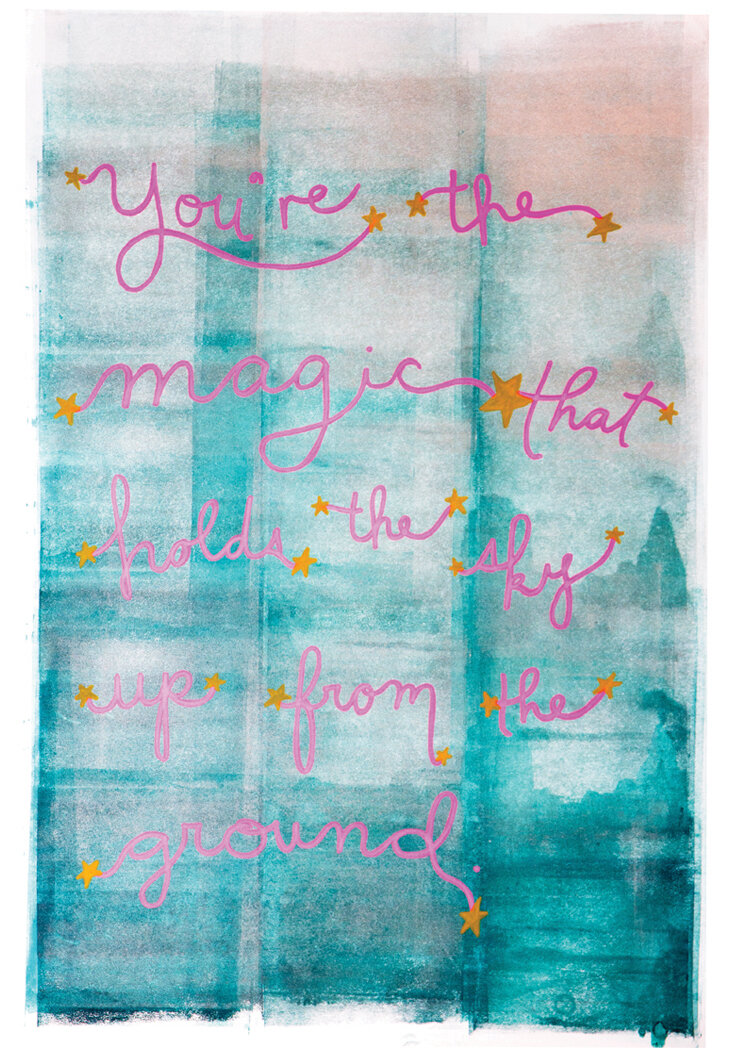 You're the
magic that
holds the sky
up from the
ground.